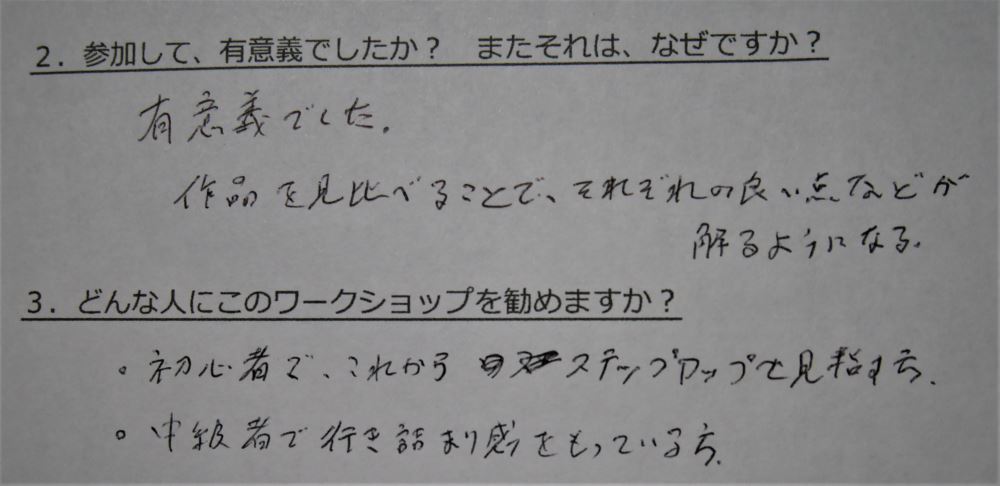 2．参加して、有意義でしたか？　またそれは、なぜですか？
有意義でした。
作品を見比べることで、それぞれの良い点などが
解るようになる。
3．どんな人にこのワークショップを勧めますか？
。初心者で、これから ステップアップを見指す方、
。中級者で行き詰まり感をもっている方、